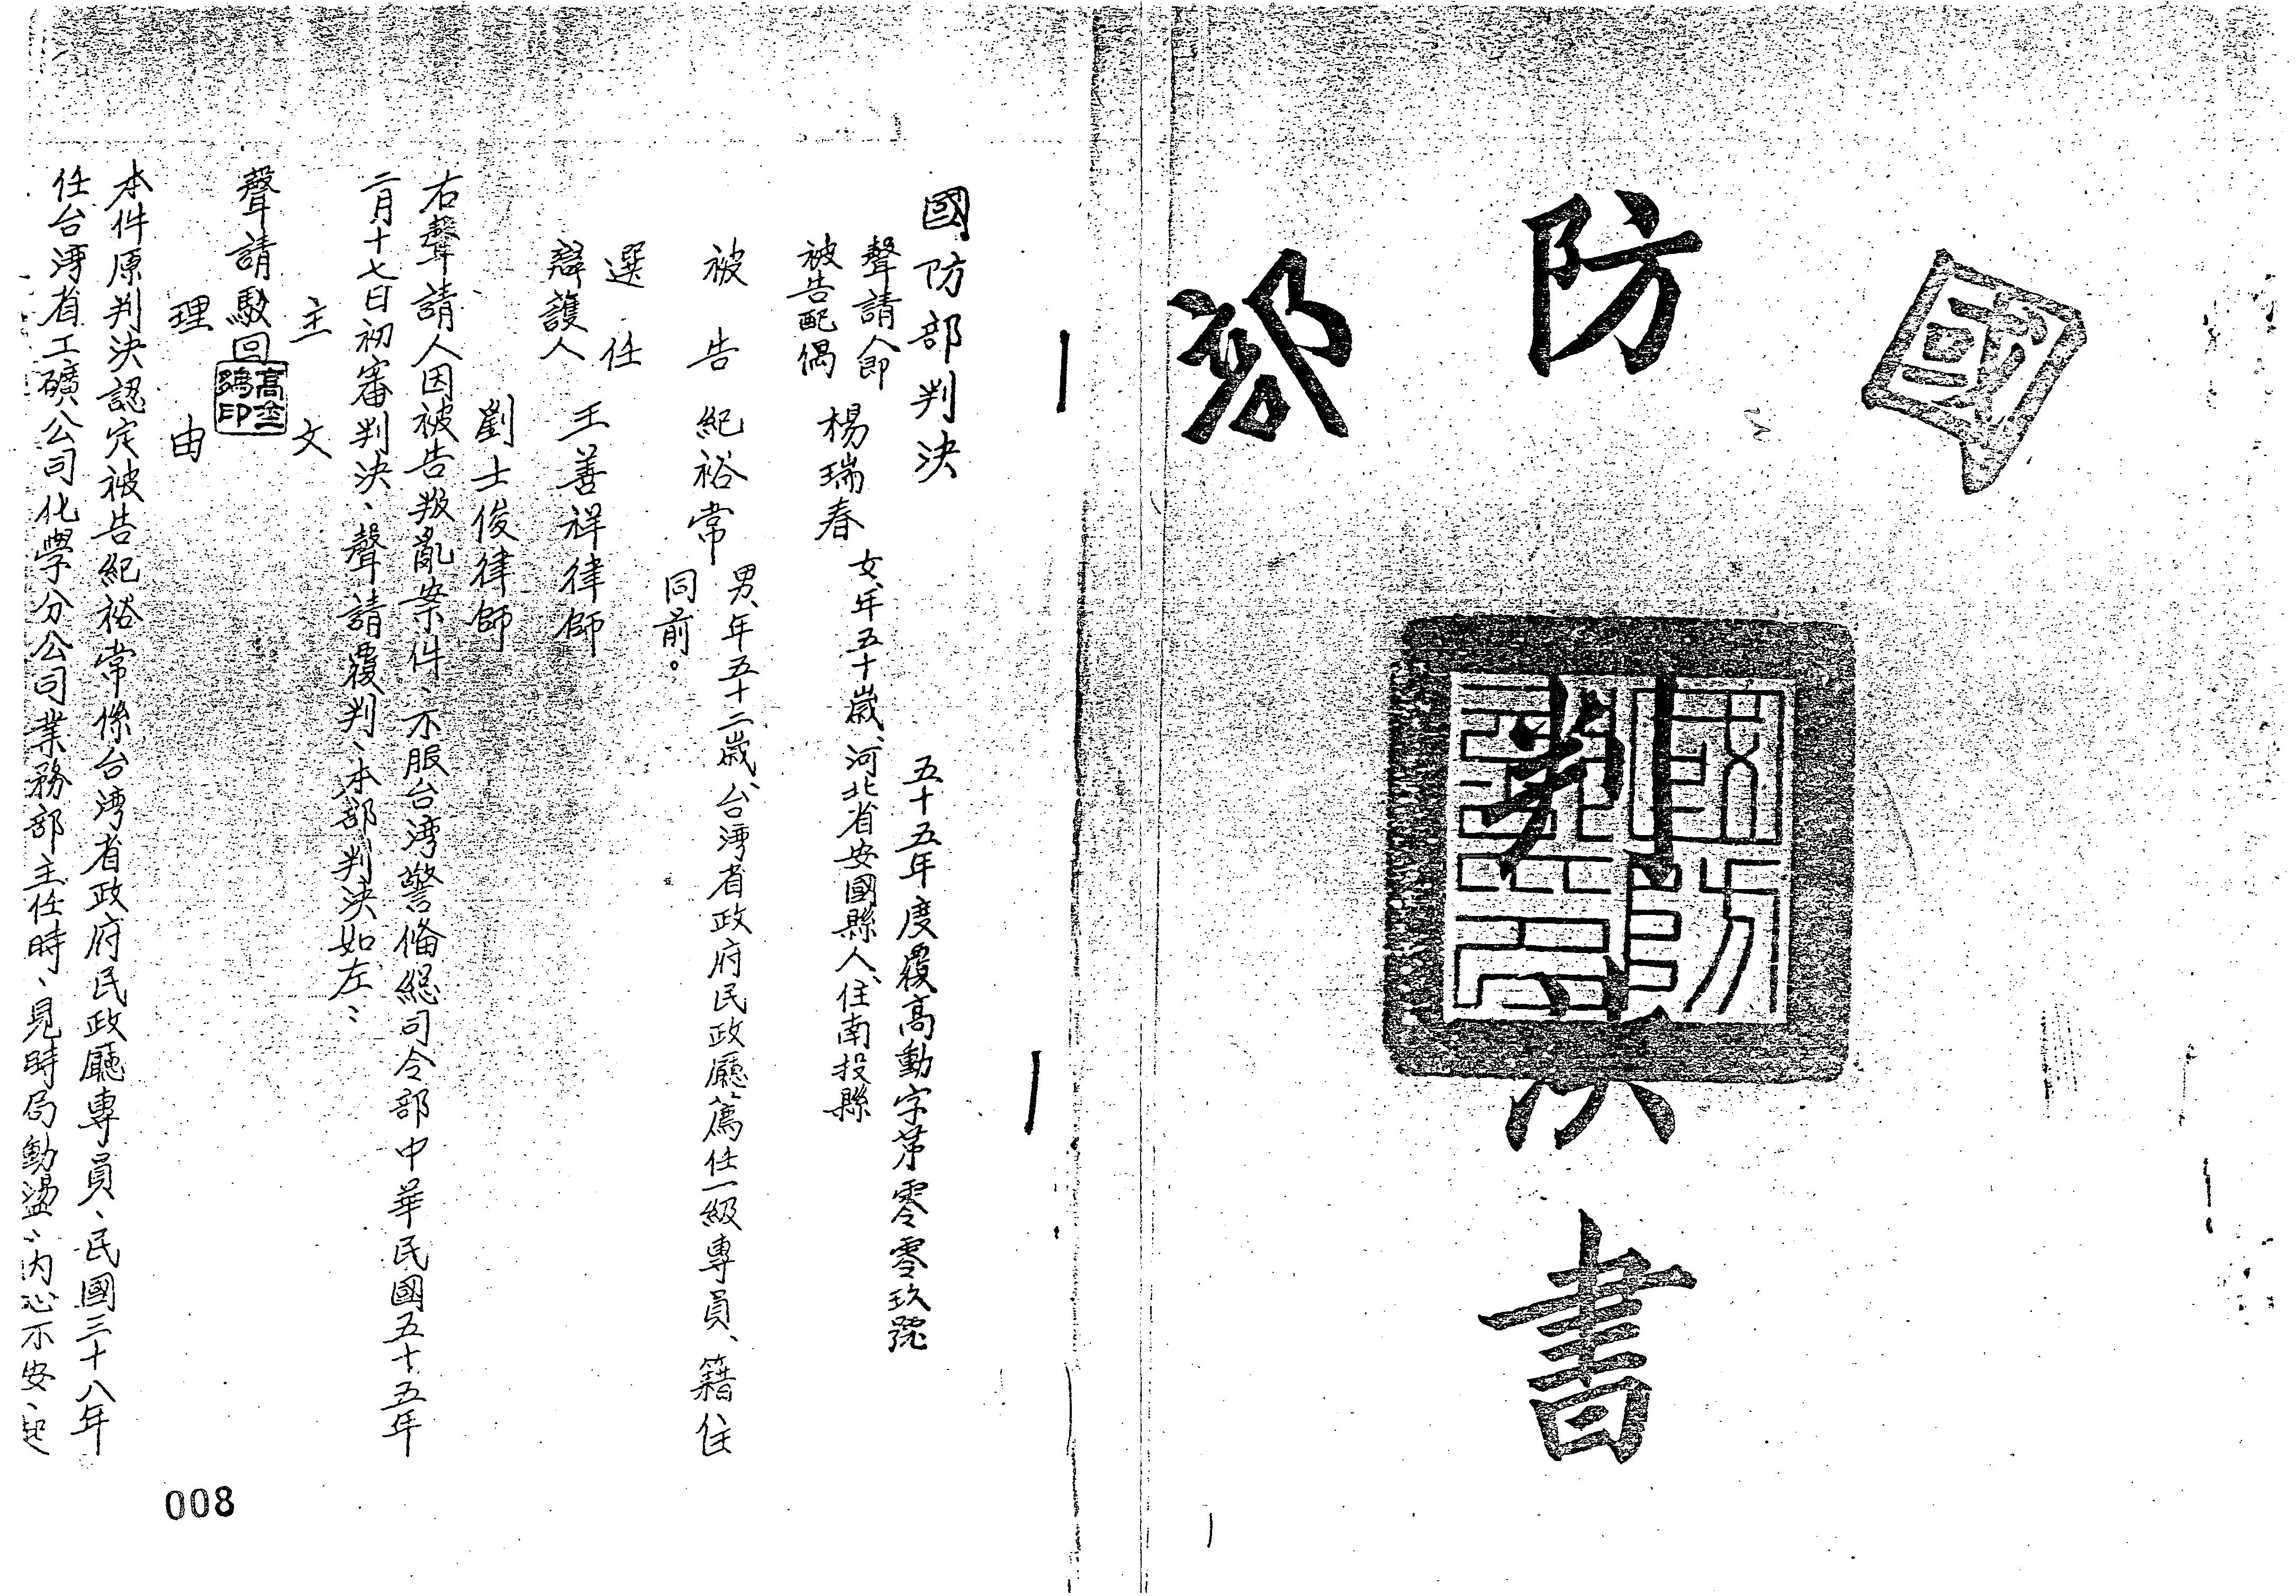 國防部
判決書
國防部判決
五十五年度覆高勤字第零零玖號
聲請人即
被告配偶
楊瑞春
女、年五十歲、河北省安國縣人、住南投縣
被告
紀裕常
男、年五十二歲、台灣省政府民政廳薦任一級專員、籍住
同前。
選任
辯護人
王善祥律師
劉士俊律師
右聲請人因被告叛亂案件、不服台灣警備總司令部中華民國五十五年
二月十七日初審判決、聲請覆判、本部判決如左：
主文
聲請駁回
理由
本件原判決認定被告紀裕常係台灣省政府民政廳專員、民國三十八年
任台灣省工礦公司化學分公司業務部主任時、見時局動盪、內心不安、
008